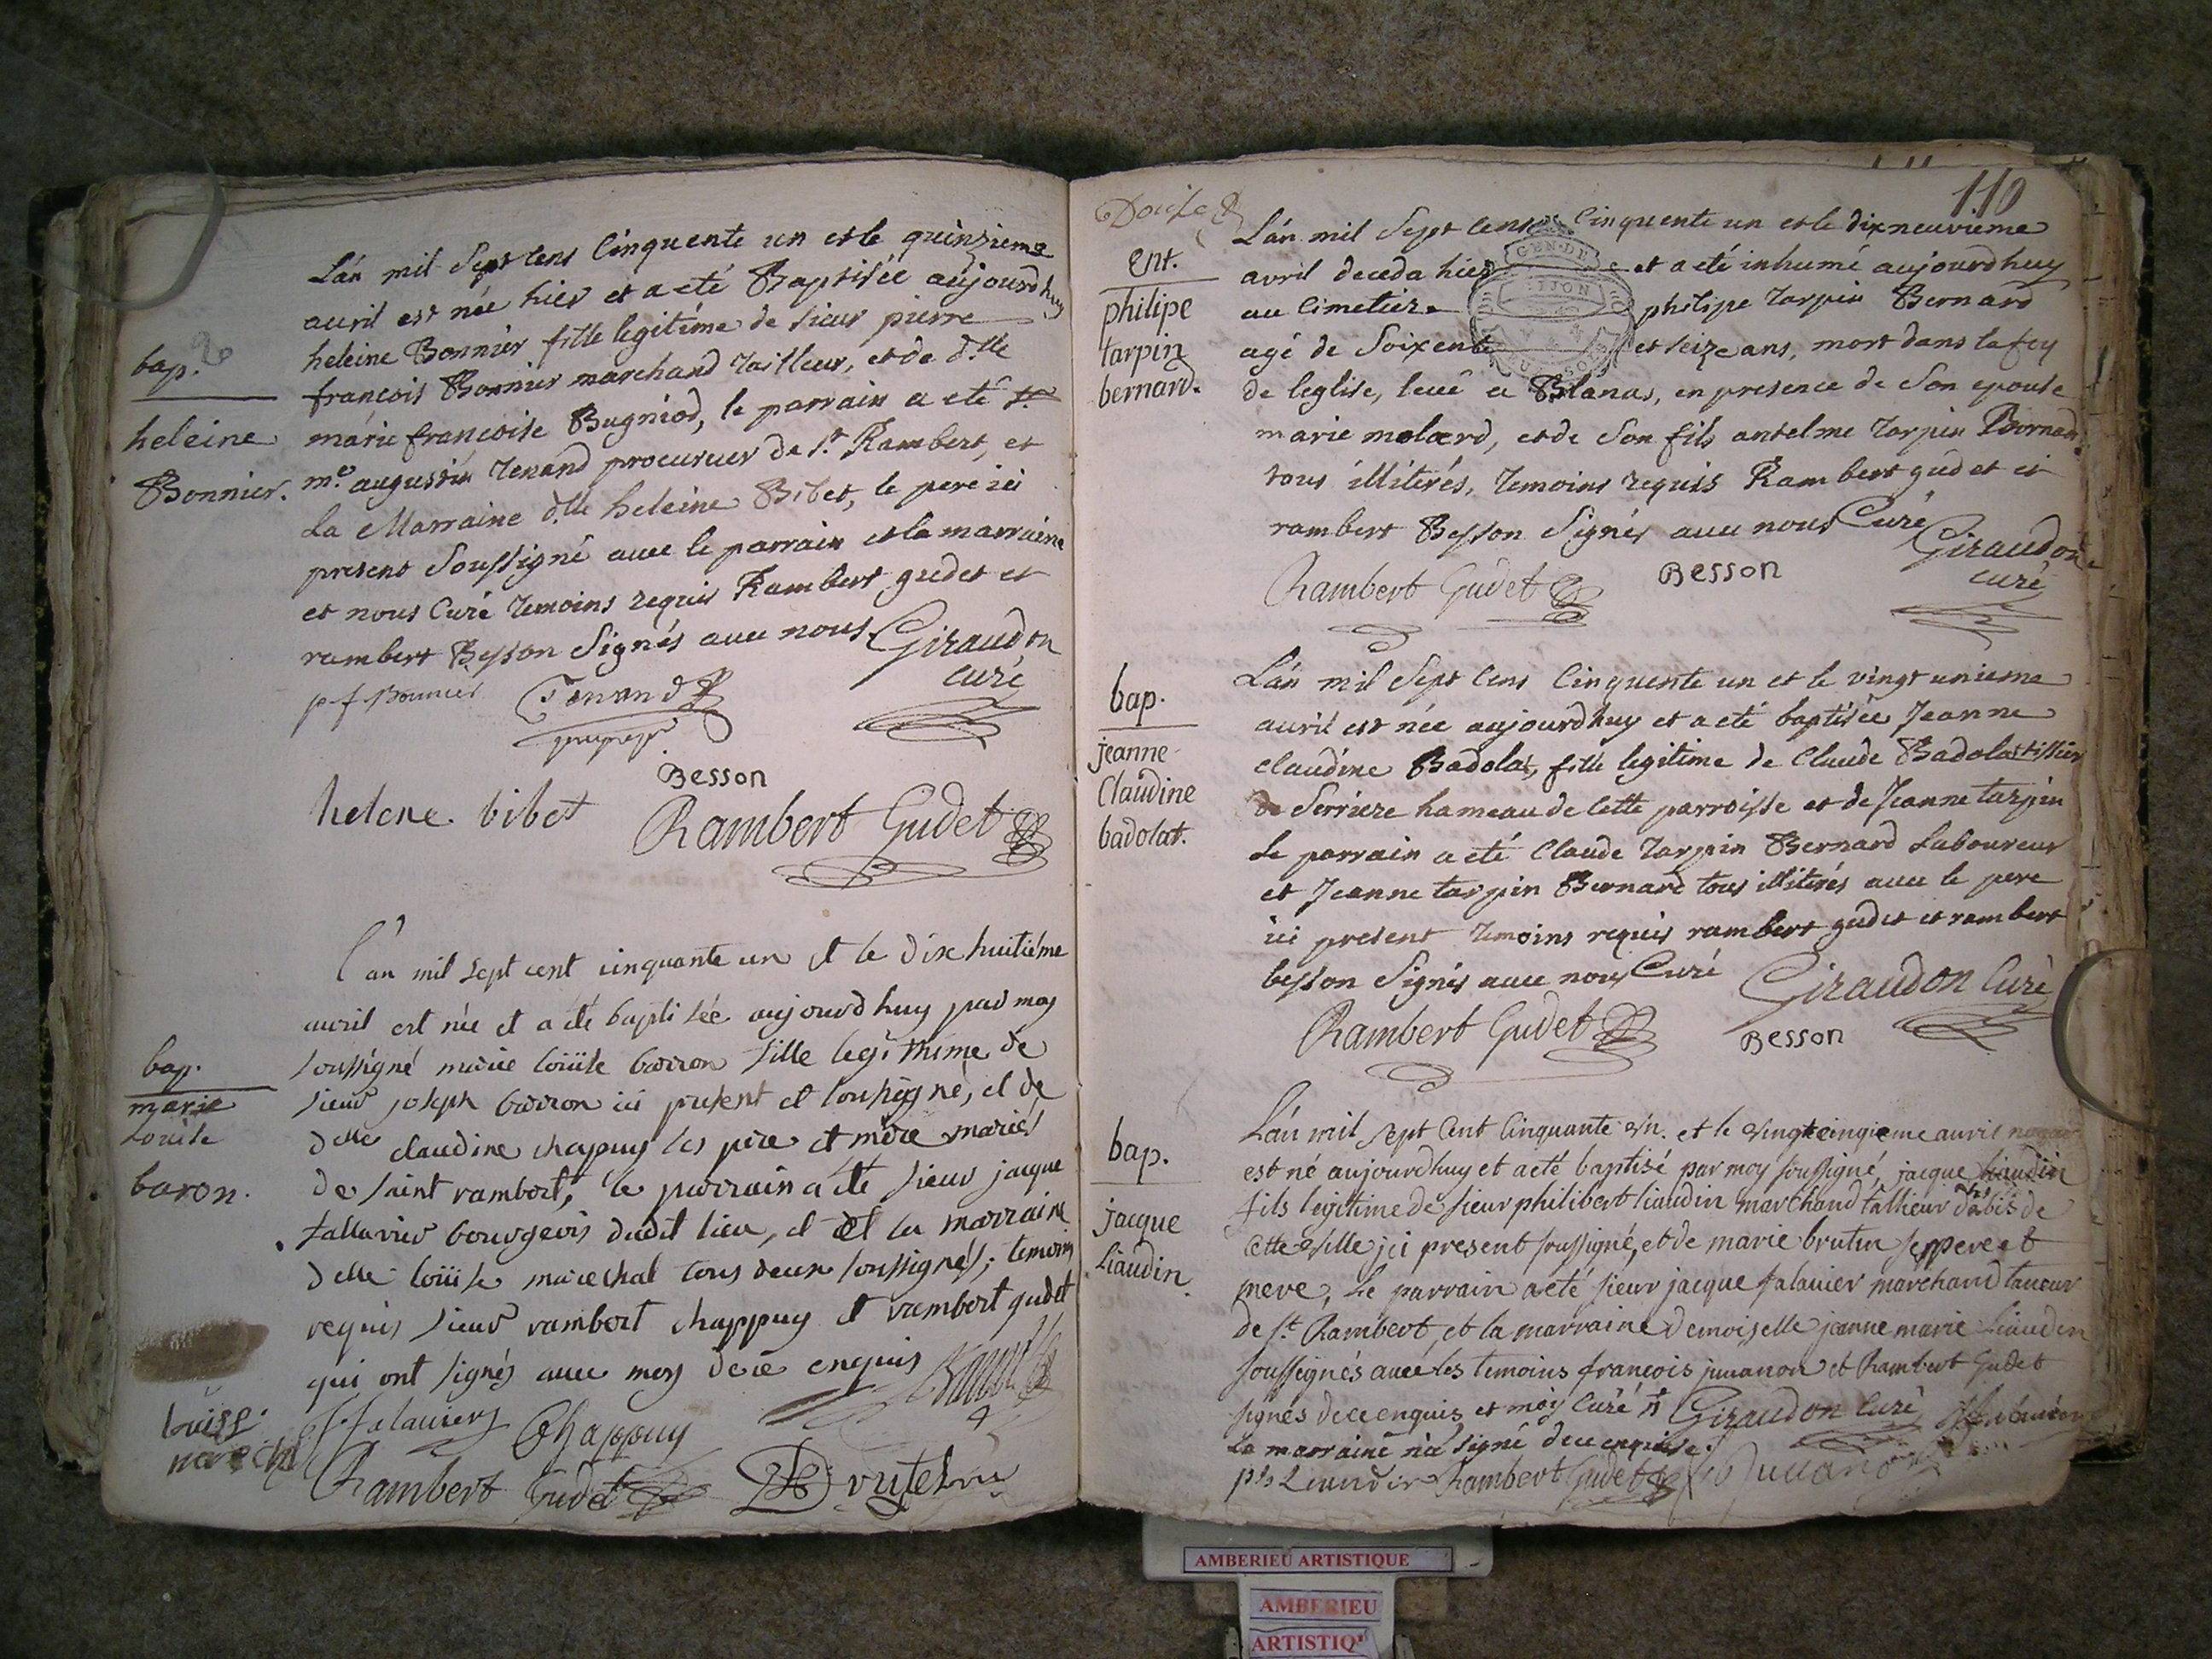 L'an mil Sept Cens Cinquente un et le quinzieme
avril est née hier et a eté Baptisée aujourdhuy
heleine Bonnier fille legitime de sieur pierre
françois Bonnier marchand Tailleur, et de d.lle
marie françoise Bugniod, le parrain a eté
m.e augustin Tenand procureur de S.t Rambert, et
La Marraine d.lle heleine Bibet, le pere ici
present Soussigné avec le parrain et la marraine
et nous Curé Temoins requis Rambert gudet et
rambert Besson Signés avec nous Giraudon
curé
bap.
heleine
Bonnier.
p. f. Bonnier Tenand
Besson
helene bibet Rambert Gudet
l'an mil sept cent cinquante un et le dix huitiéme
avril est née et a eté baptisée aujourd huy par moy
soussigné marie loüise barron fille legithime de
sieur joseph barron ici present et soussigné, et de
delle claudine chapuy ses pere et mère mariés
de saint rambert, le parrain a eté sieur jacque
fallavier bourgeois dudit lieu, et et la marraine
delle loüise marechal tous deux soussignés; temoins
requis sieur rambert chappuy et rambert gudet
qui ont signés avec moy de ce enquis
bap.
marie
Louise
baron.
Louise
marechal
falavier Chappuy
Rambert Gudet
110
L'an mil Sept Cens Cinquente un et le dixneuvieme
avril deceda hier et a eté inhumé aujourdhuy
au Cimetiere philipe Tarpin Bernard
agé de Soixente et seize ans, mort dans la foy
de leglise, levé a Blanas, en presence de Son epouse
marie molard, et de Son fils antelme Tarpin Bernard
tous illiterés, Temoins requis Rambert gudet et
rambert Besson Signés avec nous Curé
Giraudon
curé
Rambert Gudet Besson
ent.
philipe
tarpin
bernard.
L'an mil Sept Cens Cinquente un et le vingt unieme
avril est née aujourdhuy et a eté baptisée Jeanne
claudine Badolat, fille legitime de Claude Badolat tissier
de Serriere hameau de Cette parroisse et de Jeanne tarpin
Le parrain a eté Claude Tarpin Bernard Laboureur
et Jeanne tarpin Bernard tous illiterés avec le pere
ici present Temoins requis rambert gudet et rambert
besson Signés avec nous Curé Giraudon Curé
Rambert Gudet Besson
bap.
jeanne
Claudine
badolat.
L'an mil sept Cent Cinquante un. et le vingt cinqieme avril
est né aujourdhuy et a eté baptisé par moy soussigné, jacque liaudin
fils legitime de sieur philibert liaudin marchand tallieur d'abis de
Cette ville ici present soussigné, et de marie brutin ses pere et
mere, Le parrain a eté sieur jacque falavier marchand taneur
de S.t Rambert, et la marraine demoiselle jeanne marie Liaudin
soussignés avec les temoins françois juvanon et Rambert Gudet
signés de ce enquis et moy Curé Giraudon Curé
La marraine n'a signé de ce enquise.
bap.
jacque
Liaudin.
Rambert Gudet
AMBERIEU ARTISTIQUE
AMBERIEU
ARTISTIQ